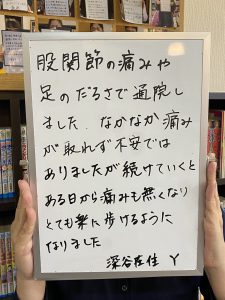 股関節の痛みや
足のだるさで通院し
ました. なかなか痛み
が取れず不安では
ありましたが続けていくと
ある日から痛みも無くなり
とても楽に歩けるように
なりました
深谷在住 Y